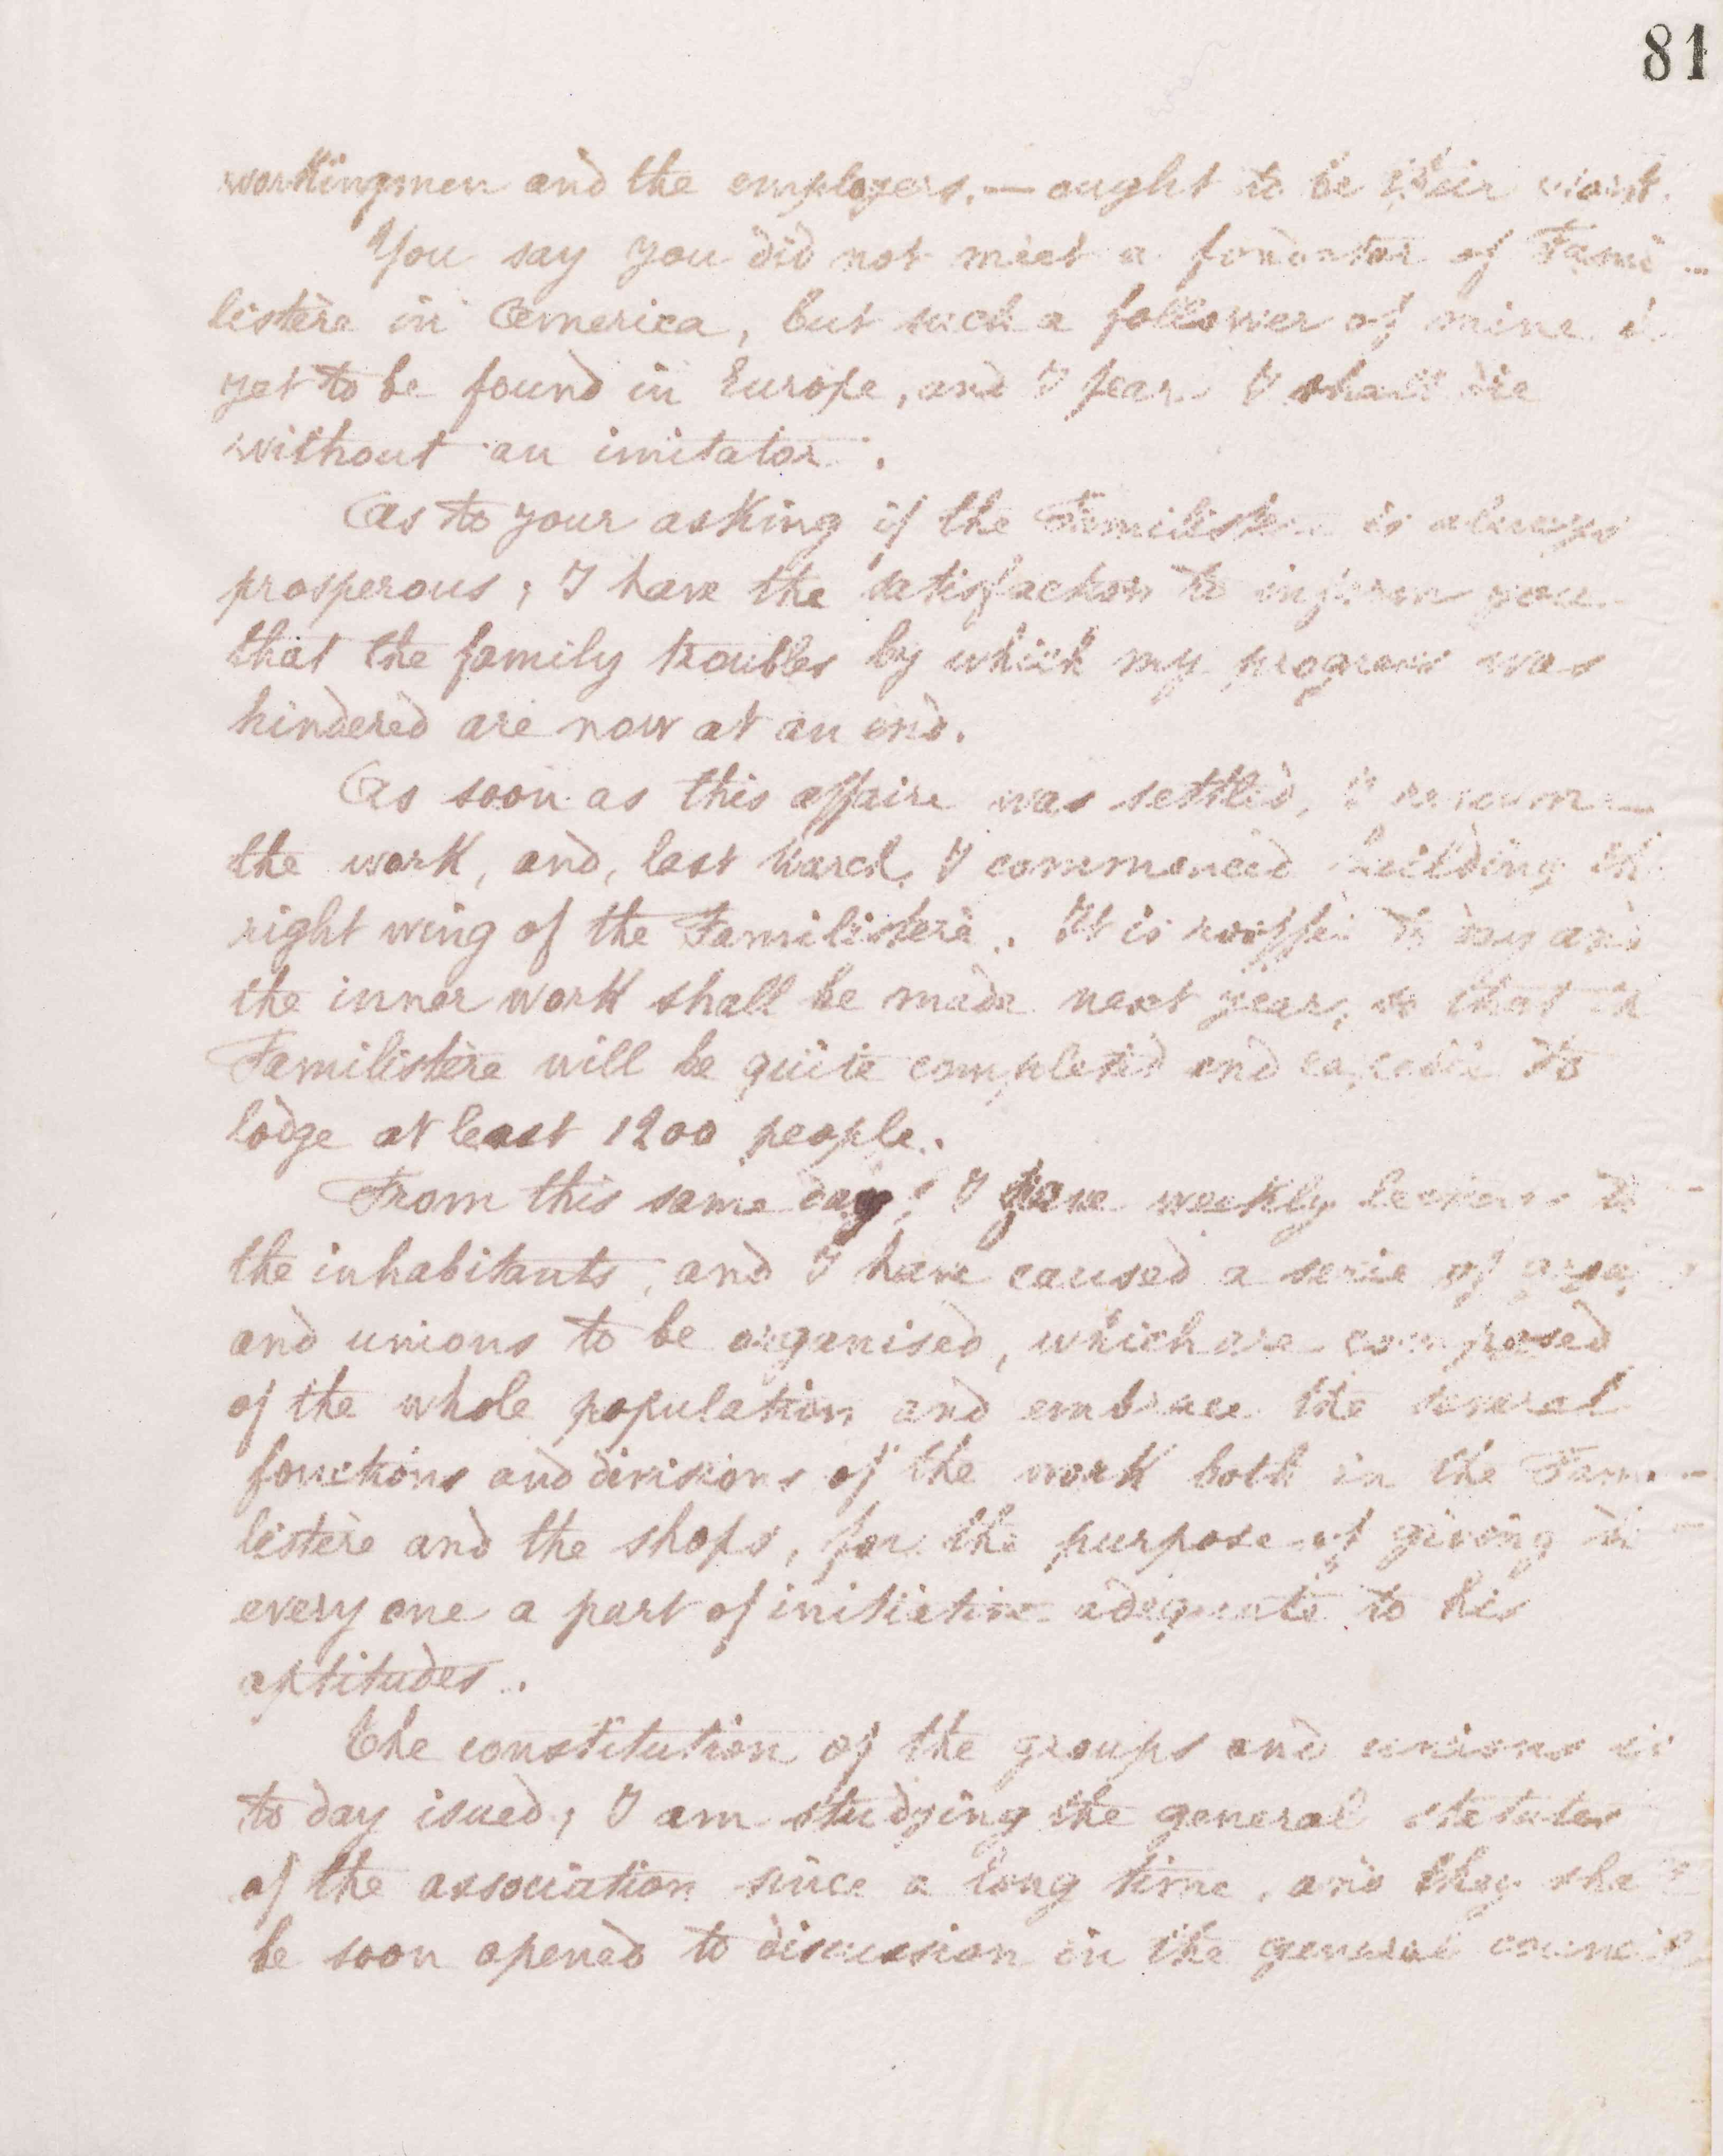 81
workingmen and the employers. — ought to be their work.
You say you did not meet a fondator of Fami-
listère in America, but such a follower of mine is
yet to be found in Europe, and I fear I shall die
without an imitator.
As to your asking if the Familistere is always
prosperous; I have the satisfaction to inform you
that the family troubles by which my progress was
hindered are now at an end.
As soon as this affaire was settled, I resum
the work, and, last March, I commenced building th
right wing of the Familistère. It is roofed to day and
the inner work shall be made next year, so that th
Familistère will be quite completed and capable to
lodge at least 1200 people.
From this same day, I gave weekly lectures to
the inhabitants, and I have caused a serie of
and unions to be organised, which are composed
of the whole population and embrace the several
fonctions and divisions of the work both in the Fami-
listère and the shops, for the purpose of giving to
every one a part of initiative adequate to his
aptitudes.
The constitution of the groups and unions is
to day isued; I am studying the general statutes
of the association since a long time, and they shall
be soon opened to discussion in the general council